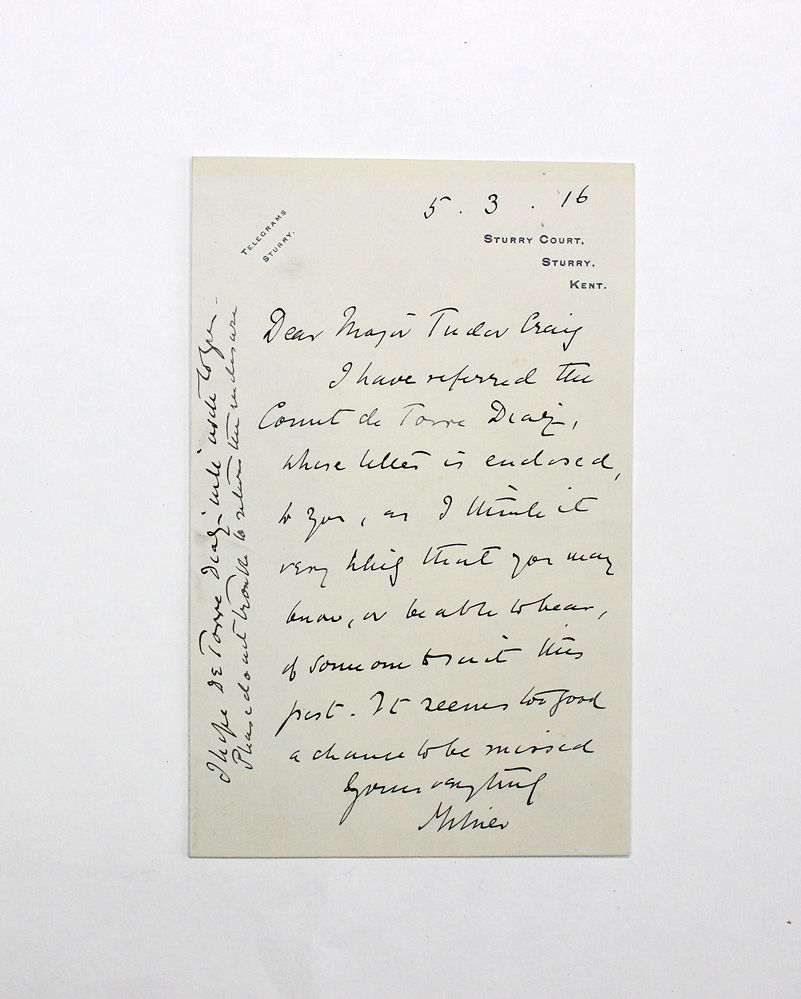 5 . 3 . 16
TELEGRAMS
STURRY.
STURRY COURT,
STURRY,
KENT.
Dear Major Tudor Craig
I have referred the
Count de Torre Diaz,
whose letter is enclosed,
to you, as I think it
very likely that you may
know, or be able to hear,
of someone to suit this
post. It seems too good
a chance to be missed
Yours very truly
Milner
I hope De Torre Diaz will write to you -
Please do not trouble to return the enclosure